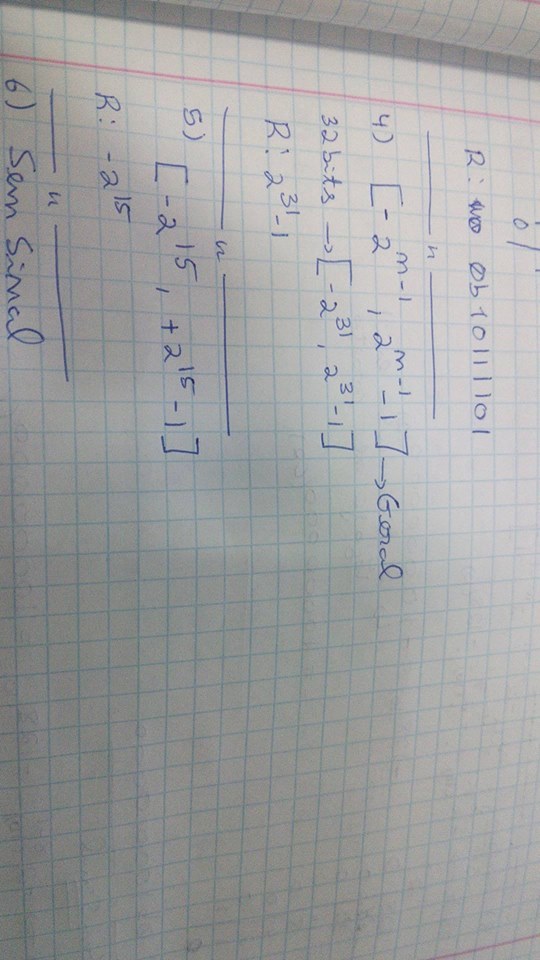 0
R: 0b10111101
4) [-2^{n-1}, 2^{n-1}-1] → Geral
32bits → [-2^{31}, 2^{31}-1]
R: 2^{31}-1
5)
[-2^{15}, +2^{15}-1]
R: -2^{15}
6) Sem Sinal